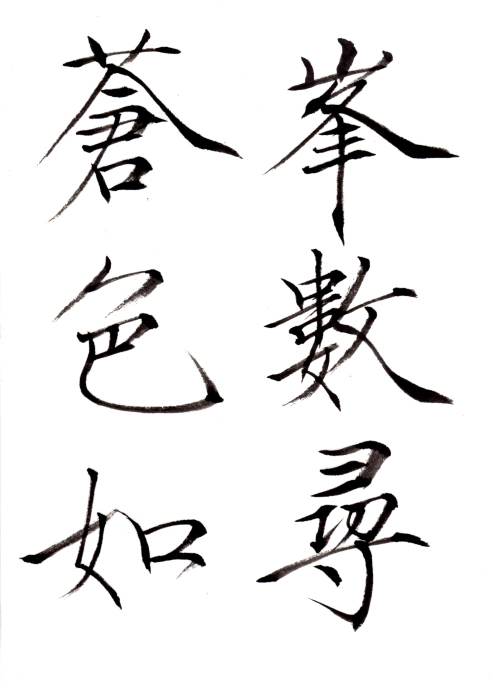 峯數尋
蒼色如